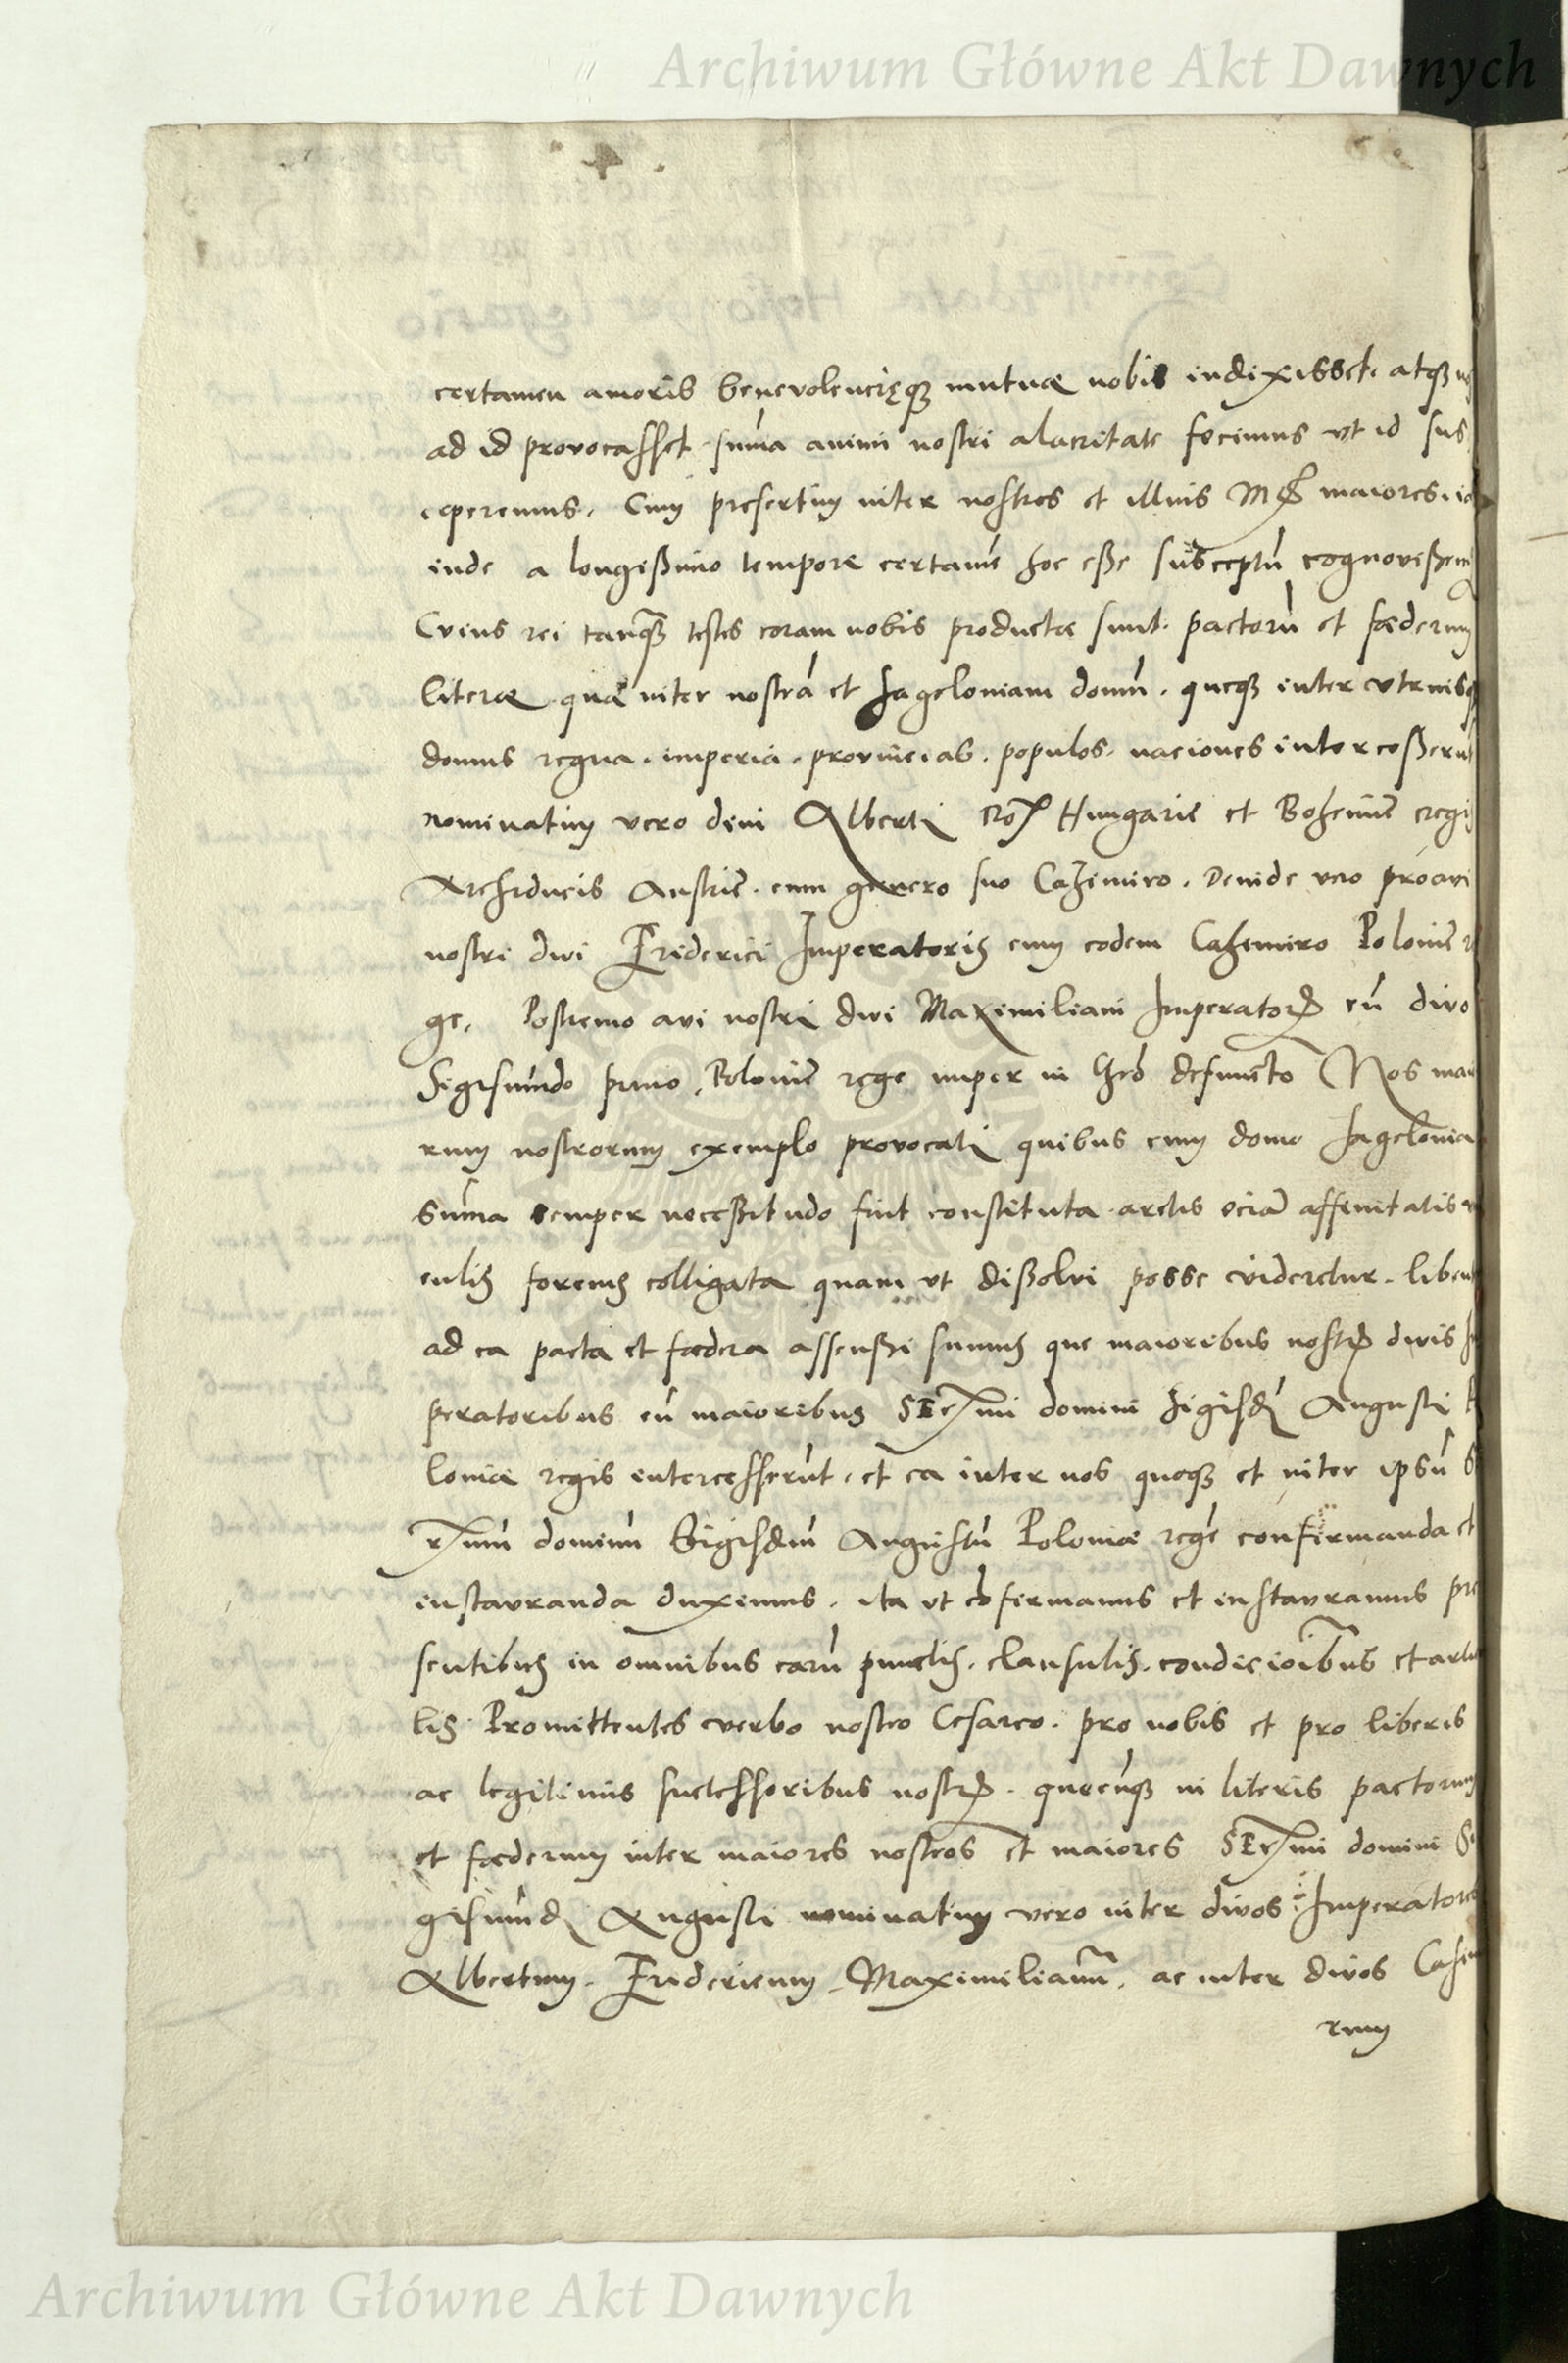 Archiwum Główne Akt Dawnych
certamen amoris benevolencięq3 mutuæ nobis indixisset. atq3
ad id provocasset. sum̄a animi nostri alacritate fecimus vt id sus
ciperemus. Cum presertim inter nostros et illius maiores.
inde a longissimo tempore certamē hoc esse susceptū cognovissem
Cuius rei tanq3 testes coram nobis productæ sunt. pactorū et fœderum
literæ quæ inter nostrā et Jageloniam domū. queq3 inter vtriusq
domus regna. imperia. provincias. populos. naciones intercesserūt
nominatim vero divi Alberti Ro Hungarie et Bohemie regis
Archiducis Austrie. cum genero suo Cazimiro. Deinde vero proavi
nostri divi Friderici Imperatoris cum eodem Casemiro Polonie re
ge. Postremo avi nostri divi Maximiliani Imperatoris cū divo
Sigismūdo primo Polonie rege nuper in Chrō defuncto Nos maio
rum nostrorum exemplo provocati quibus cum domo Jagelonia
sum̄a semper necessitudo fuit constituta. arctis eciā affinitatis
culis foremus colligata quam vt dissolvi posse videretur. liben
ad ea pacta et fœdera assensi sumus que maioribus nostris divis Im
peratoribus cū maioribus SEr̄mi domini Sigisdi Augusti Po
loniæ regis intercesserūt. et ea inter nos quoq3 et inter ipsū S
r̄mum dominū Sigisdum Augustū Poloniæ regē confirmanda et
instauranda duximus. ita vt cōfirmamus et instauramus pre
sentibus in omnibus earū punctis. clausulis. condicioībus et articu
lis. Promittentes verbo nostro Cesareo. pro nobis et pro liberis
ac legitimis successoribus nostris. quecūq3 in literis pactorum
et fœderum inter maiores nostros et maiores SEr̄mi domini Si
gismūdi Augusti nominatim vero inter divos Imperatores
Albertum. Fridericum. Maximilianū. ac inter divos Casimi
rum
Archiwum Główne Akt Dawnych